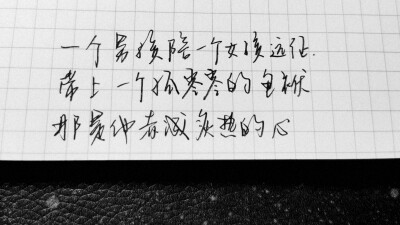 一个男孩陪一个女孩远征.
带上一个孤零零的包袱
那是他青涩炙热的心